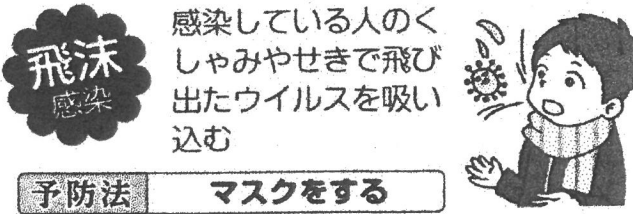 飛沫
感染
感染している人のく
しゃみやせきで飛び
出たウイルスを吸い
込む
予防法 マスクをする